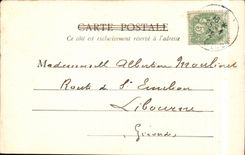 CARTE POSTALE
Ce côté est exclusivement réservé à l'adresse
Mademoiselle Albertine
Route de St Emilion
Libourne
Gironde